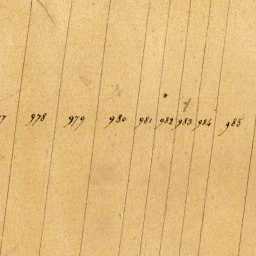 978 979 980 981 982 983 984 985